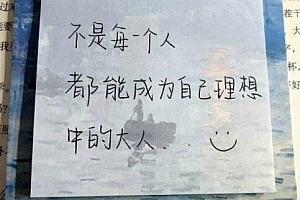 不是每一个人
都能成为自己理想
中的大人...